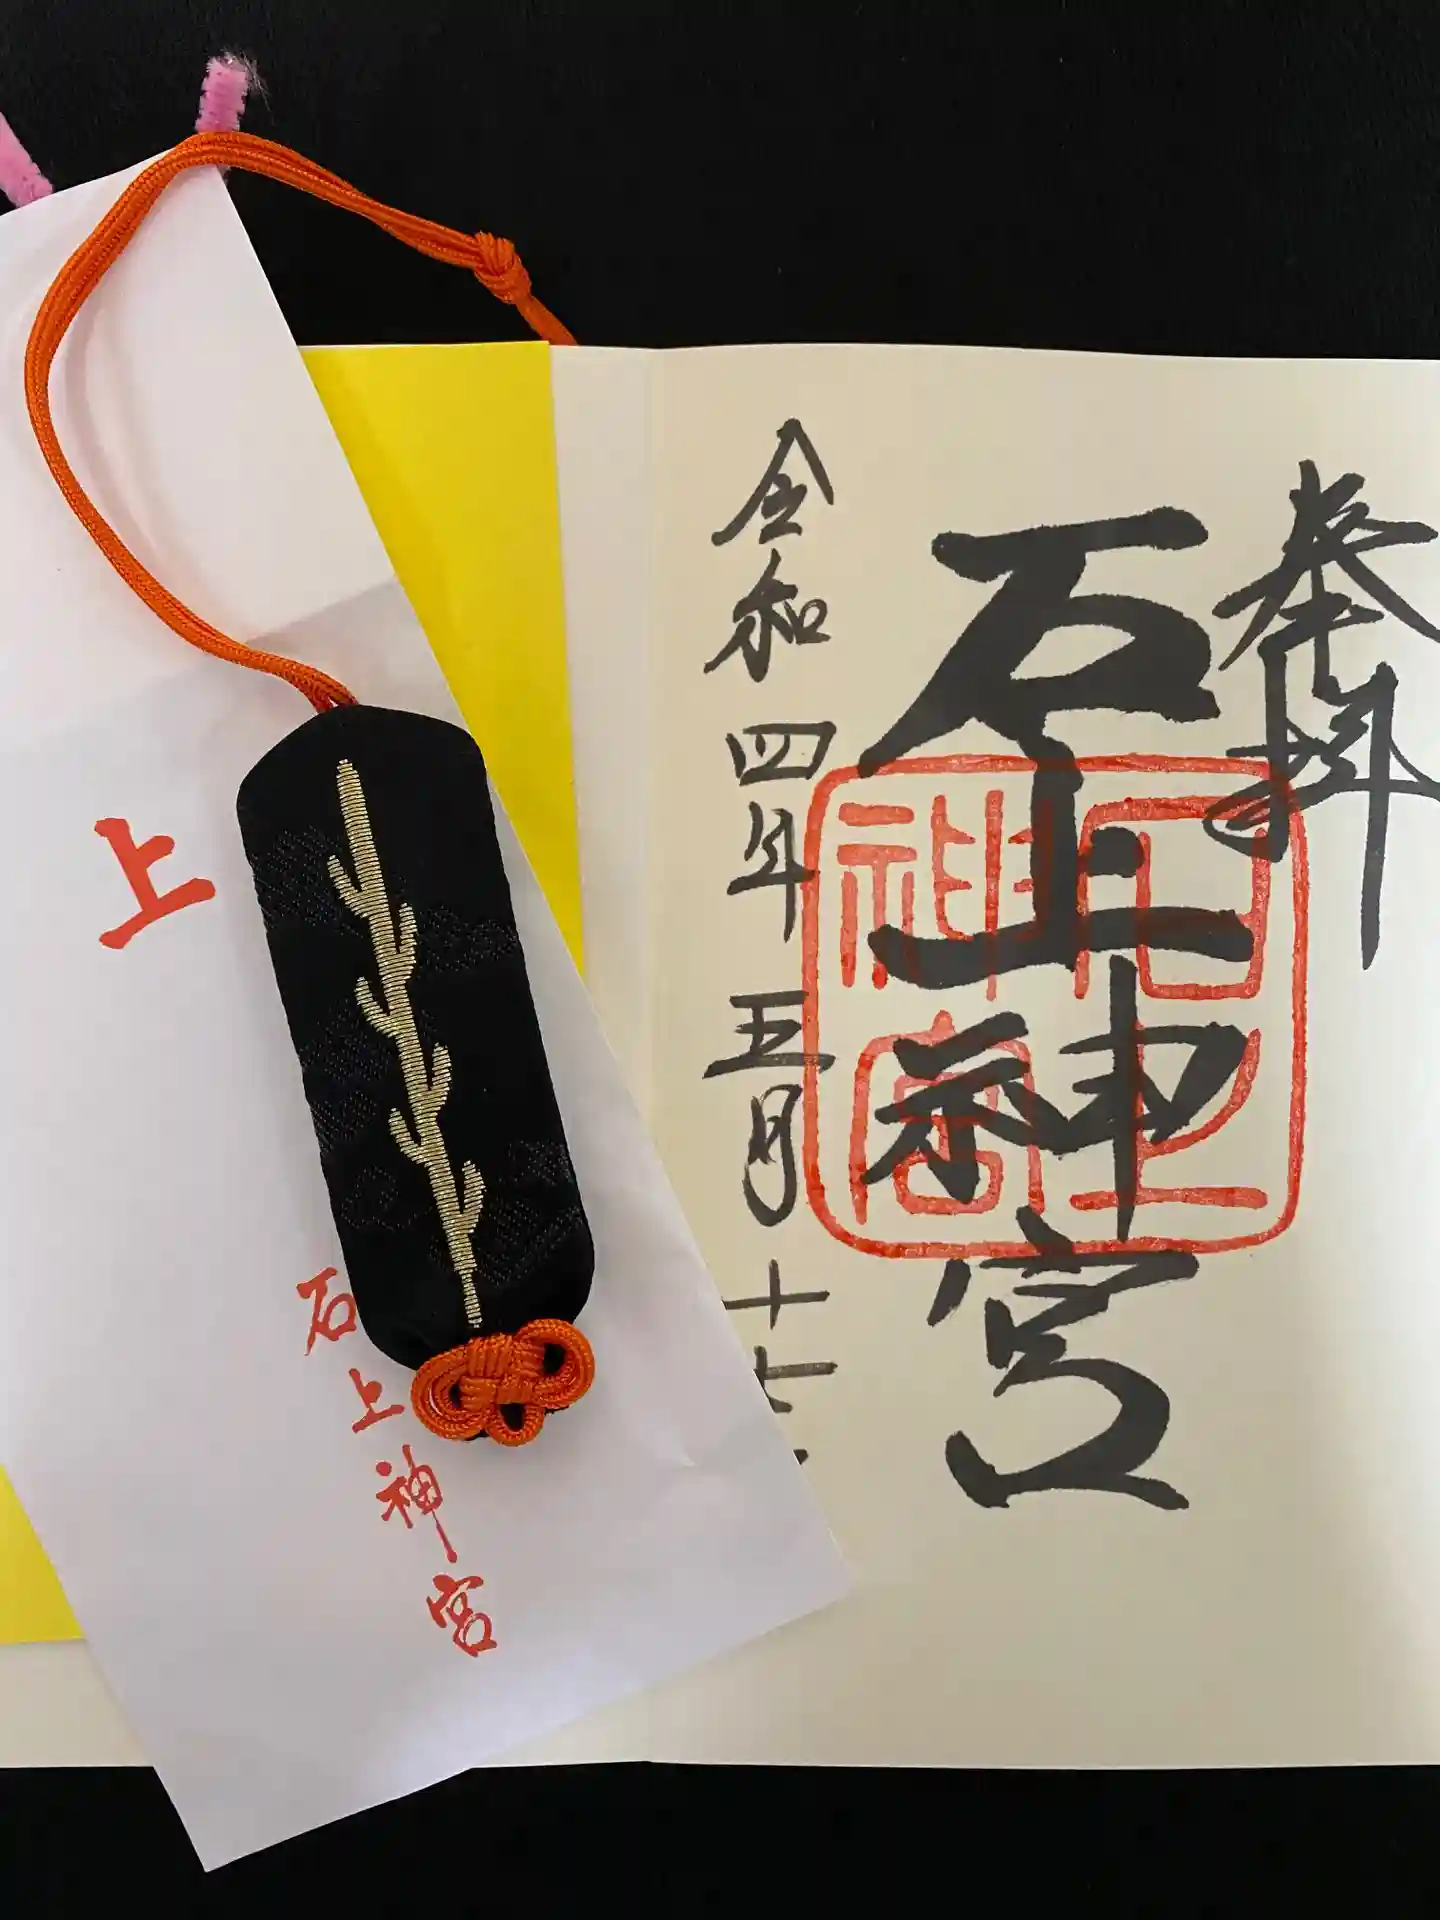 奉拝
石上神宮
石上神宮
令和四年五月十七
上
石上神宮